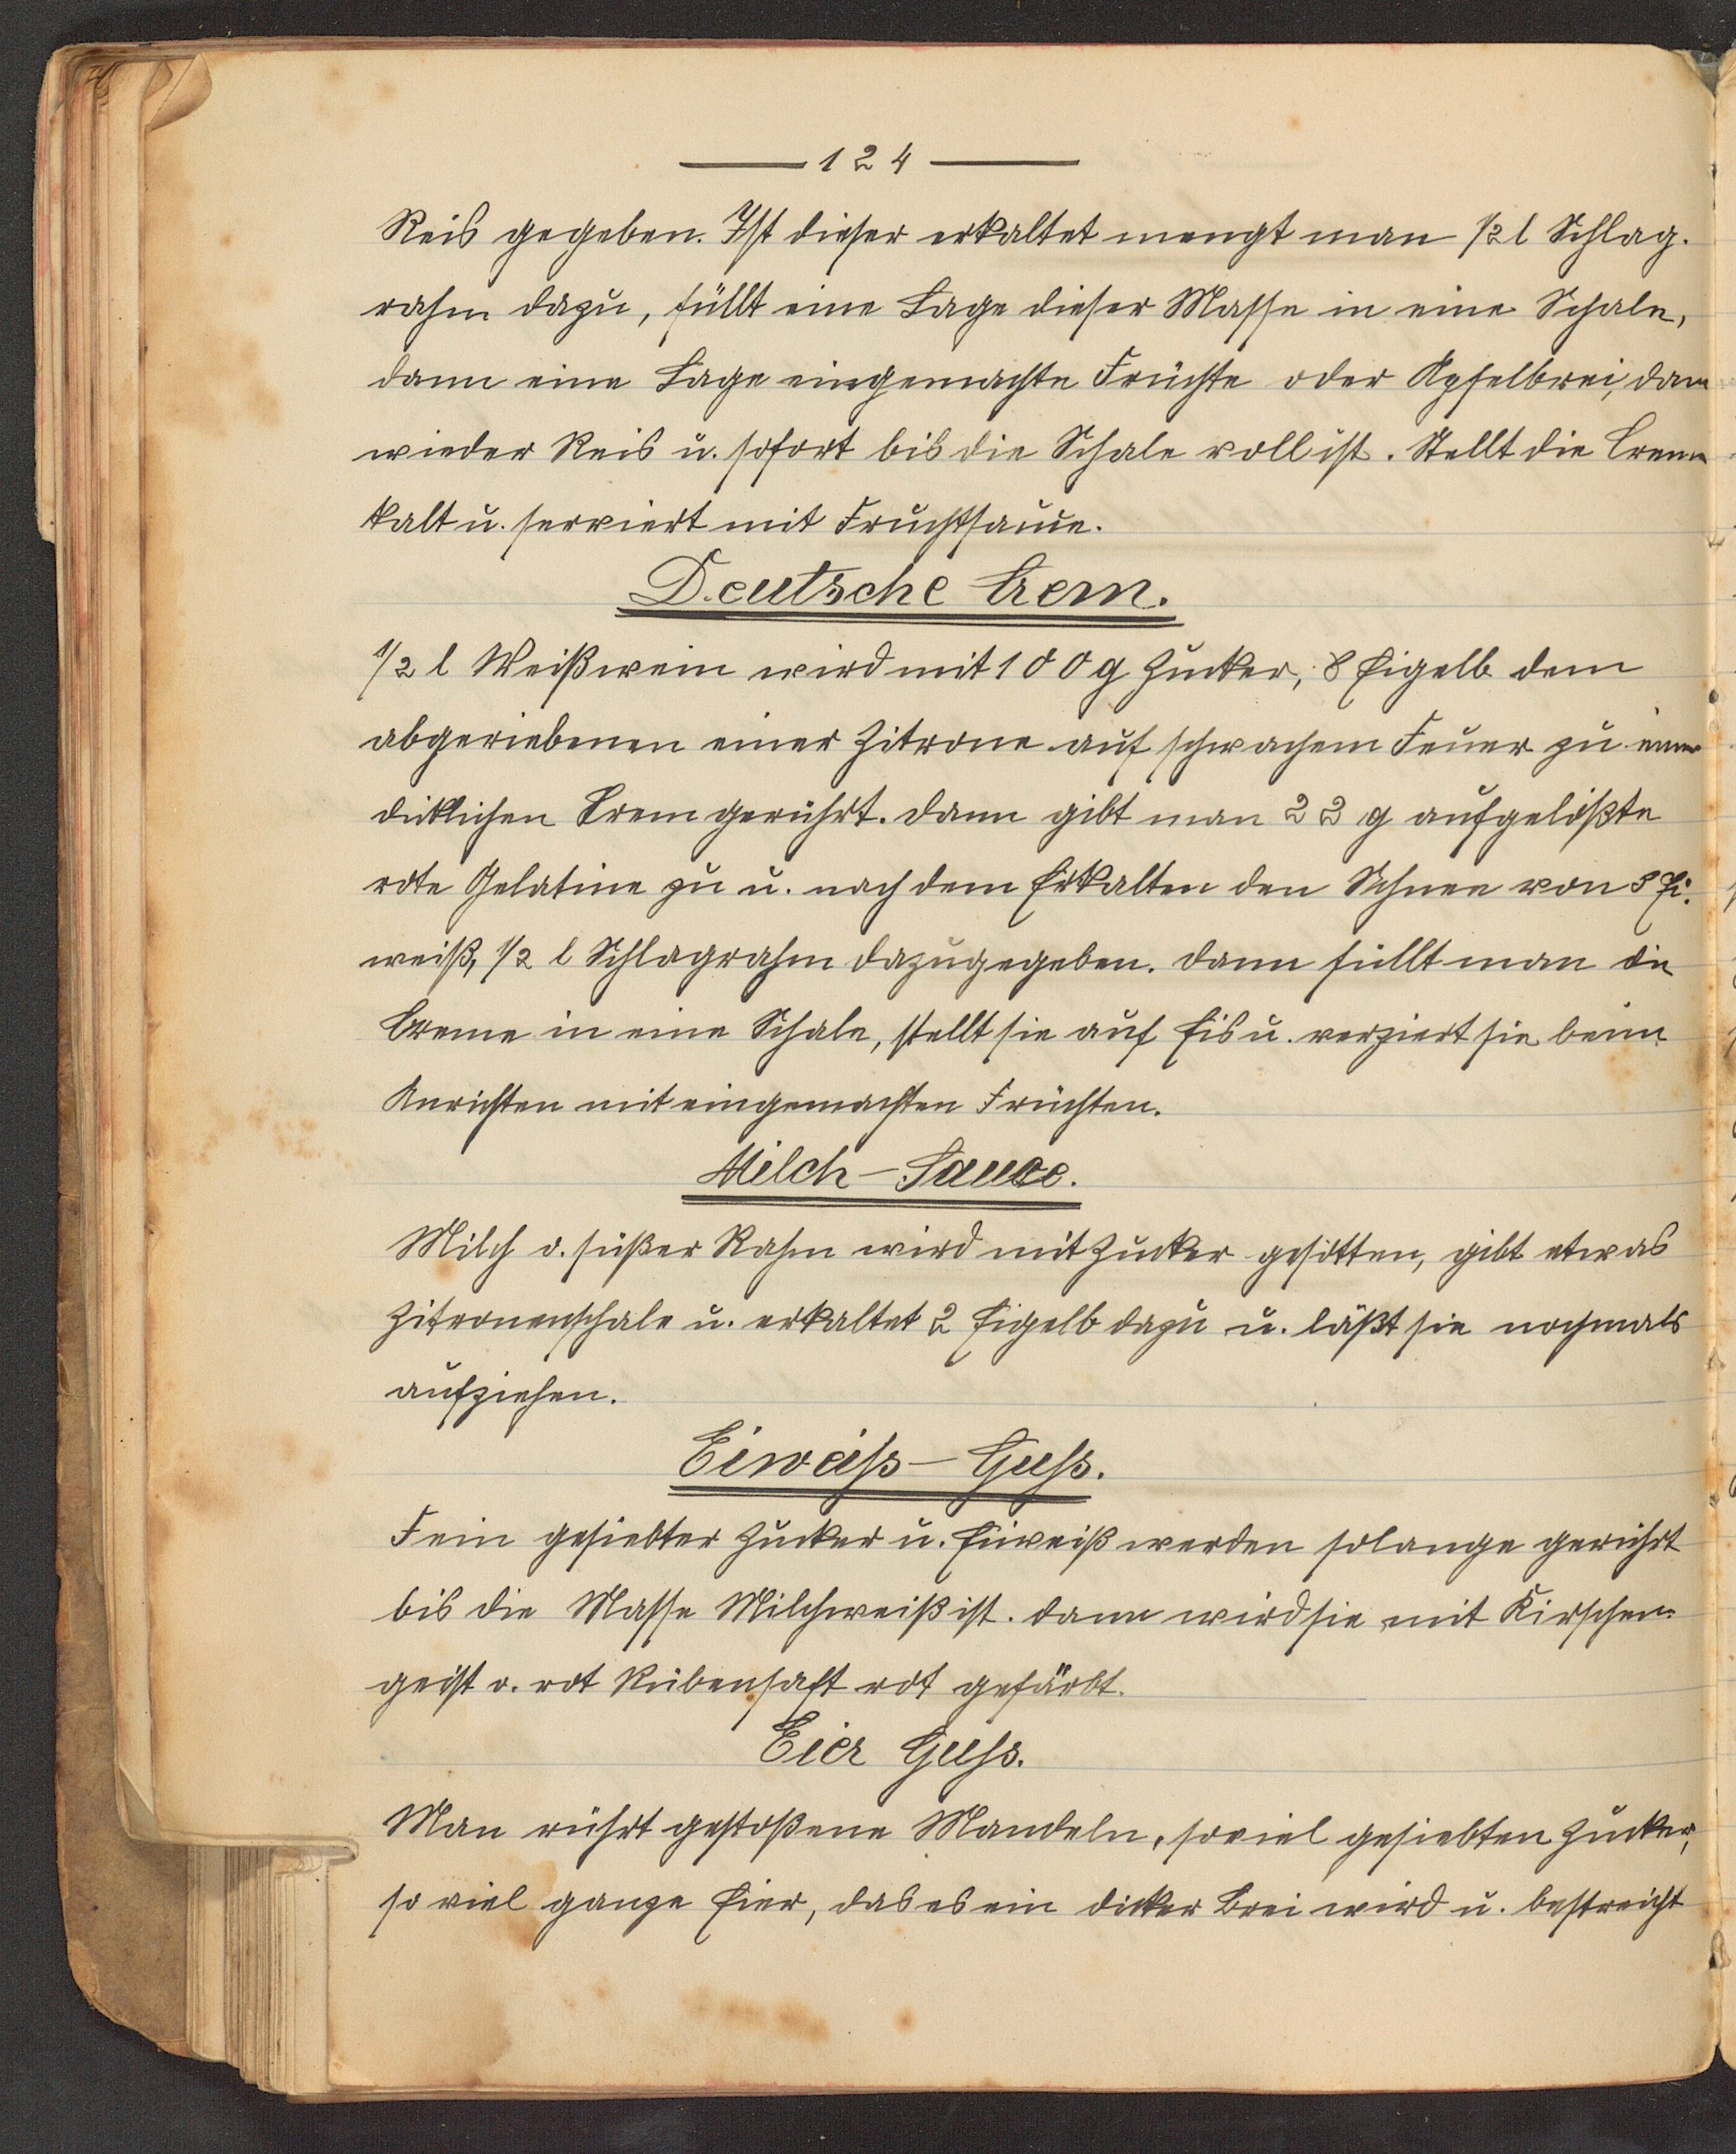 124
Reis gegeben. Ist dieser erkaltet mengt man 1/2 l Schlag-
rahm dazu, füllt eine Lage dieser Masse in eine Schale,
dann eine Lage eingemachte Früchte oder Apfelbrei, dann
wieder Reis u. sofort bis die Schale voll ist. Stellt die Creme
kalt u. serviert mit Fruchtsauce.
Deutsche Crem.
1/2 l Weißwein wird mit 100 g Zucker, 8 Eigelb dem
abgeriebenen einer Zitrone auf schwachem Feuer zu einer
dicklichen Crem gerührt. Dann gibt man 22 g aufgelößte
rote Gelatine zu u. nach dem Erkalten den Schnee von 8 Ei-
weiß, 1/2 l Schlagrahm dazugegeben. Dann füllt man die
Creme in eine Schale, stellt sie auf Eis u. verziert sie beim
Anrichten mit eingemachten Früchten.
Milch-Sauce.
Milch o. süßer Rahm wird mit Zucker gesotten, gibt etwas
Zitronenschale u. erkaltet 2 Eigelb dazu u. läßt sie nochmals
aufziehen.
Eiweiss-Guss.
Fein gesiebter Zucker u. Eiweiß werden solange gerührt
bis die Masse Milchweiß ist. Dann wird sie mit Kirschen-
geist o. rot Rübensaft rot gefärbt.
Eier Guss.
Man rührt gestoßene Mandeln, soviel gesiebten Zucker,
so viel ganze Eier, das es ein dicker Brei wird u. bestreicht